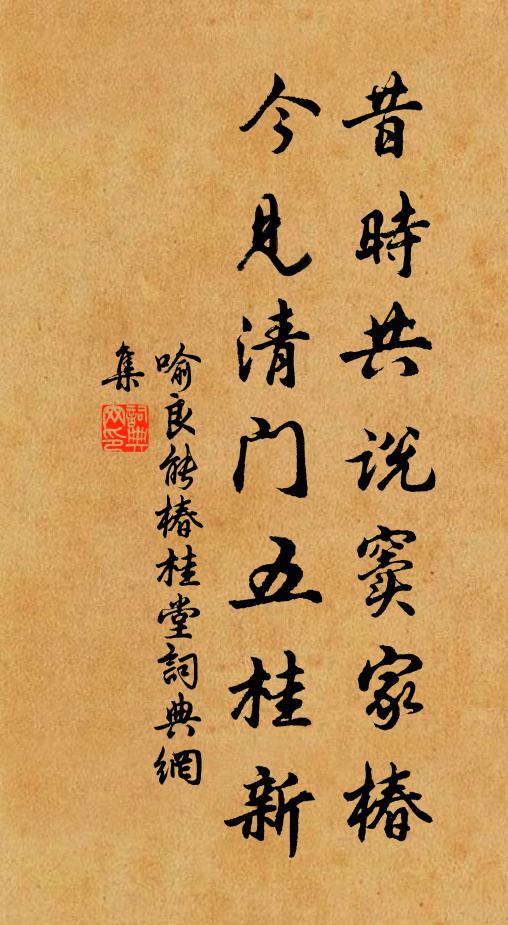 昔時共説竇家椿
今見清门五桂新
喻良能椿桂堂詞典網
集
詞典网印